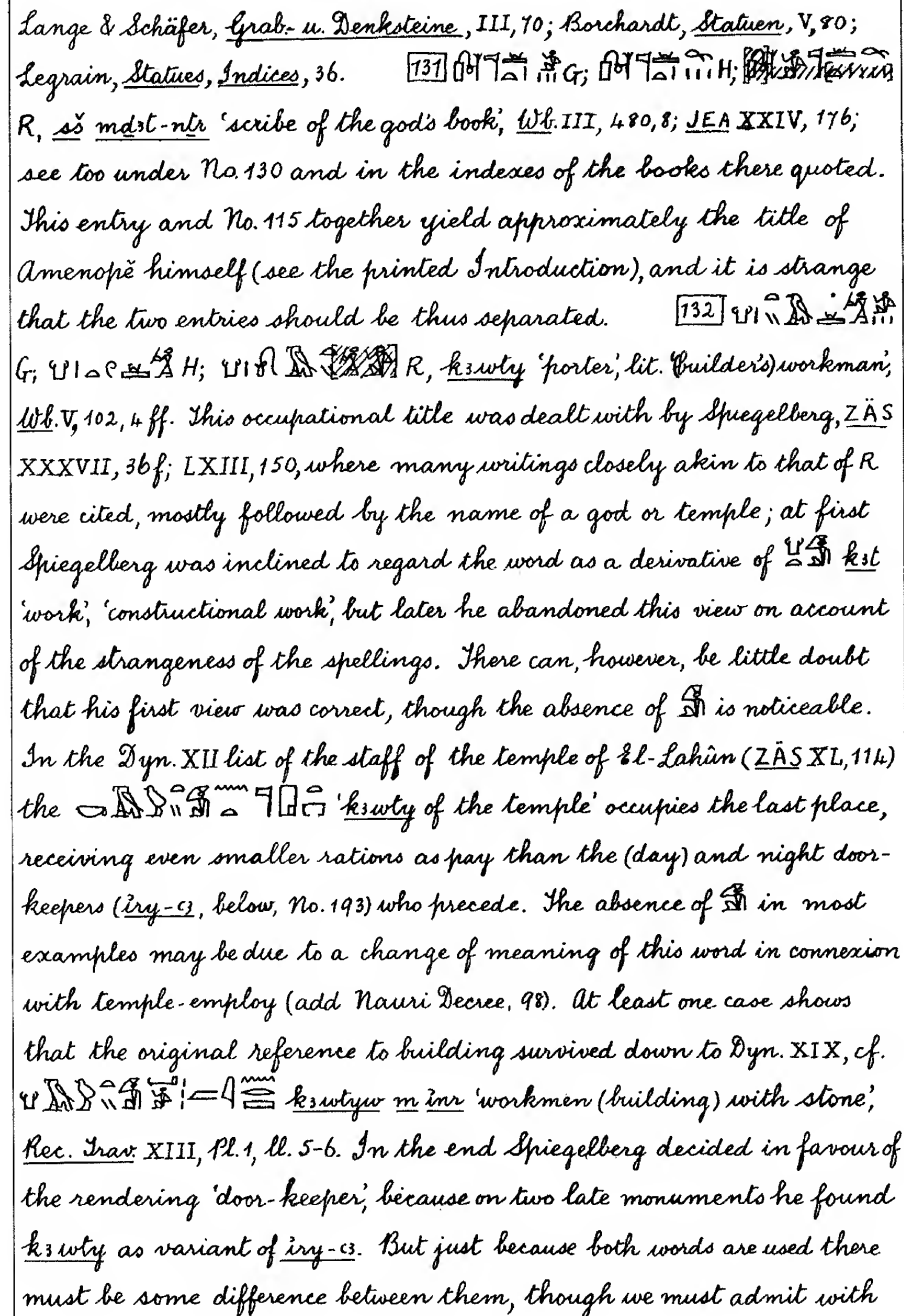 Lange & Schäfer, Grab- u. Denksteine, III, 70; Borchardt, Statuen, V, 80;
Legrain, Statues, Indices, 36. 131 G; H;
R, sš mḏꜣt-nṯr 'scribe of the god's book', Wb. III, 480,8; JEA XXIV, 176;
see too under No. 130 and in the indexes of the books there quoted.
This entry and No. 115 together yield approximately the title of
Amenopĕ himself (see the printed Introduction), and it is strange
that the two entries should be thus separated. 132
G; H; R, kꜣwty 'porter', lit. (builder's) workman',
Wb. V, 102, 4 ff. This occupational title was dealt with by Spiegelberg, ZÄS
XXXVII, 36f; LXIII, 150, where many writings closely akin to that of R
were cited, mostly followed by the name of a god or temple; at first
Spiegelberg was inclined to regard the word as a derivative of kꜣt
'work', 'constructional work', but later he abandoned this view on account
of the strangeness of the spellings. There can, however, be little doubt
that his first view was correct, though the absence of is noticeable.
In the Dyn. XII list of the staff of the temple of El-Lahûn (ZÄS XL, 114)
the 'kꜣwty of the temple' occupies the last place,
receiving even smaller rations as pay than the (day) and night door-
keepers (iry-ꜥꜣ, below, No. 193) who precede. The absence of in most
examples may be due to a change of meaning of this word in connexion
with temple-employ (add Nauri Decree, 98). At least one case shows
that the original reference to building survived down to Dyn. XIX, cf.
kꜣwtyw m inr 'workmen (building) with stone',
Rec. Trav. XIII, Pl. 1, ll. 5-6. In the end Spiegelberg decided in favour of
the rendering 'door-keeper', because on two late monuments he found
kꜣwty as variant of iry-ꜥꜣ. But just because both words are used there
must be some difference between them, though we must admit with